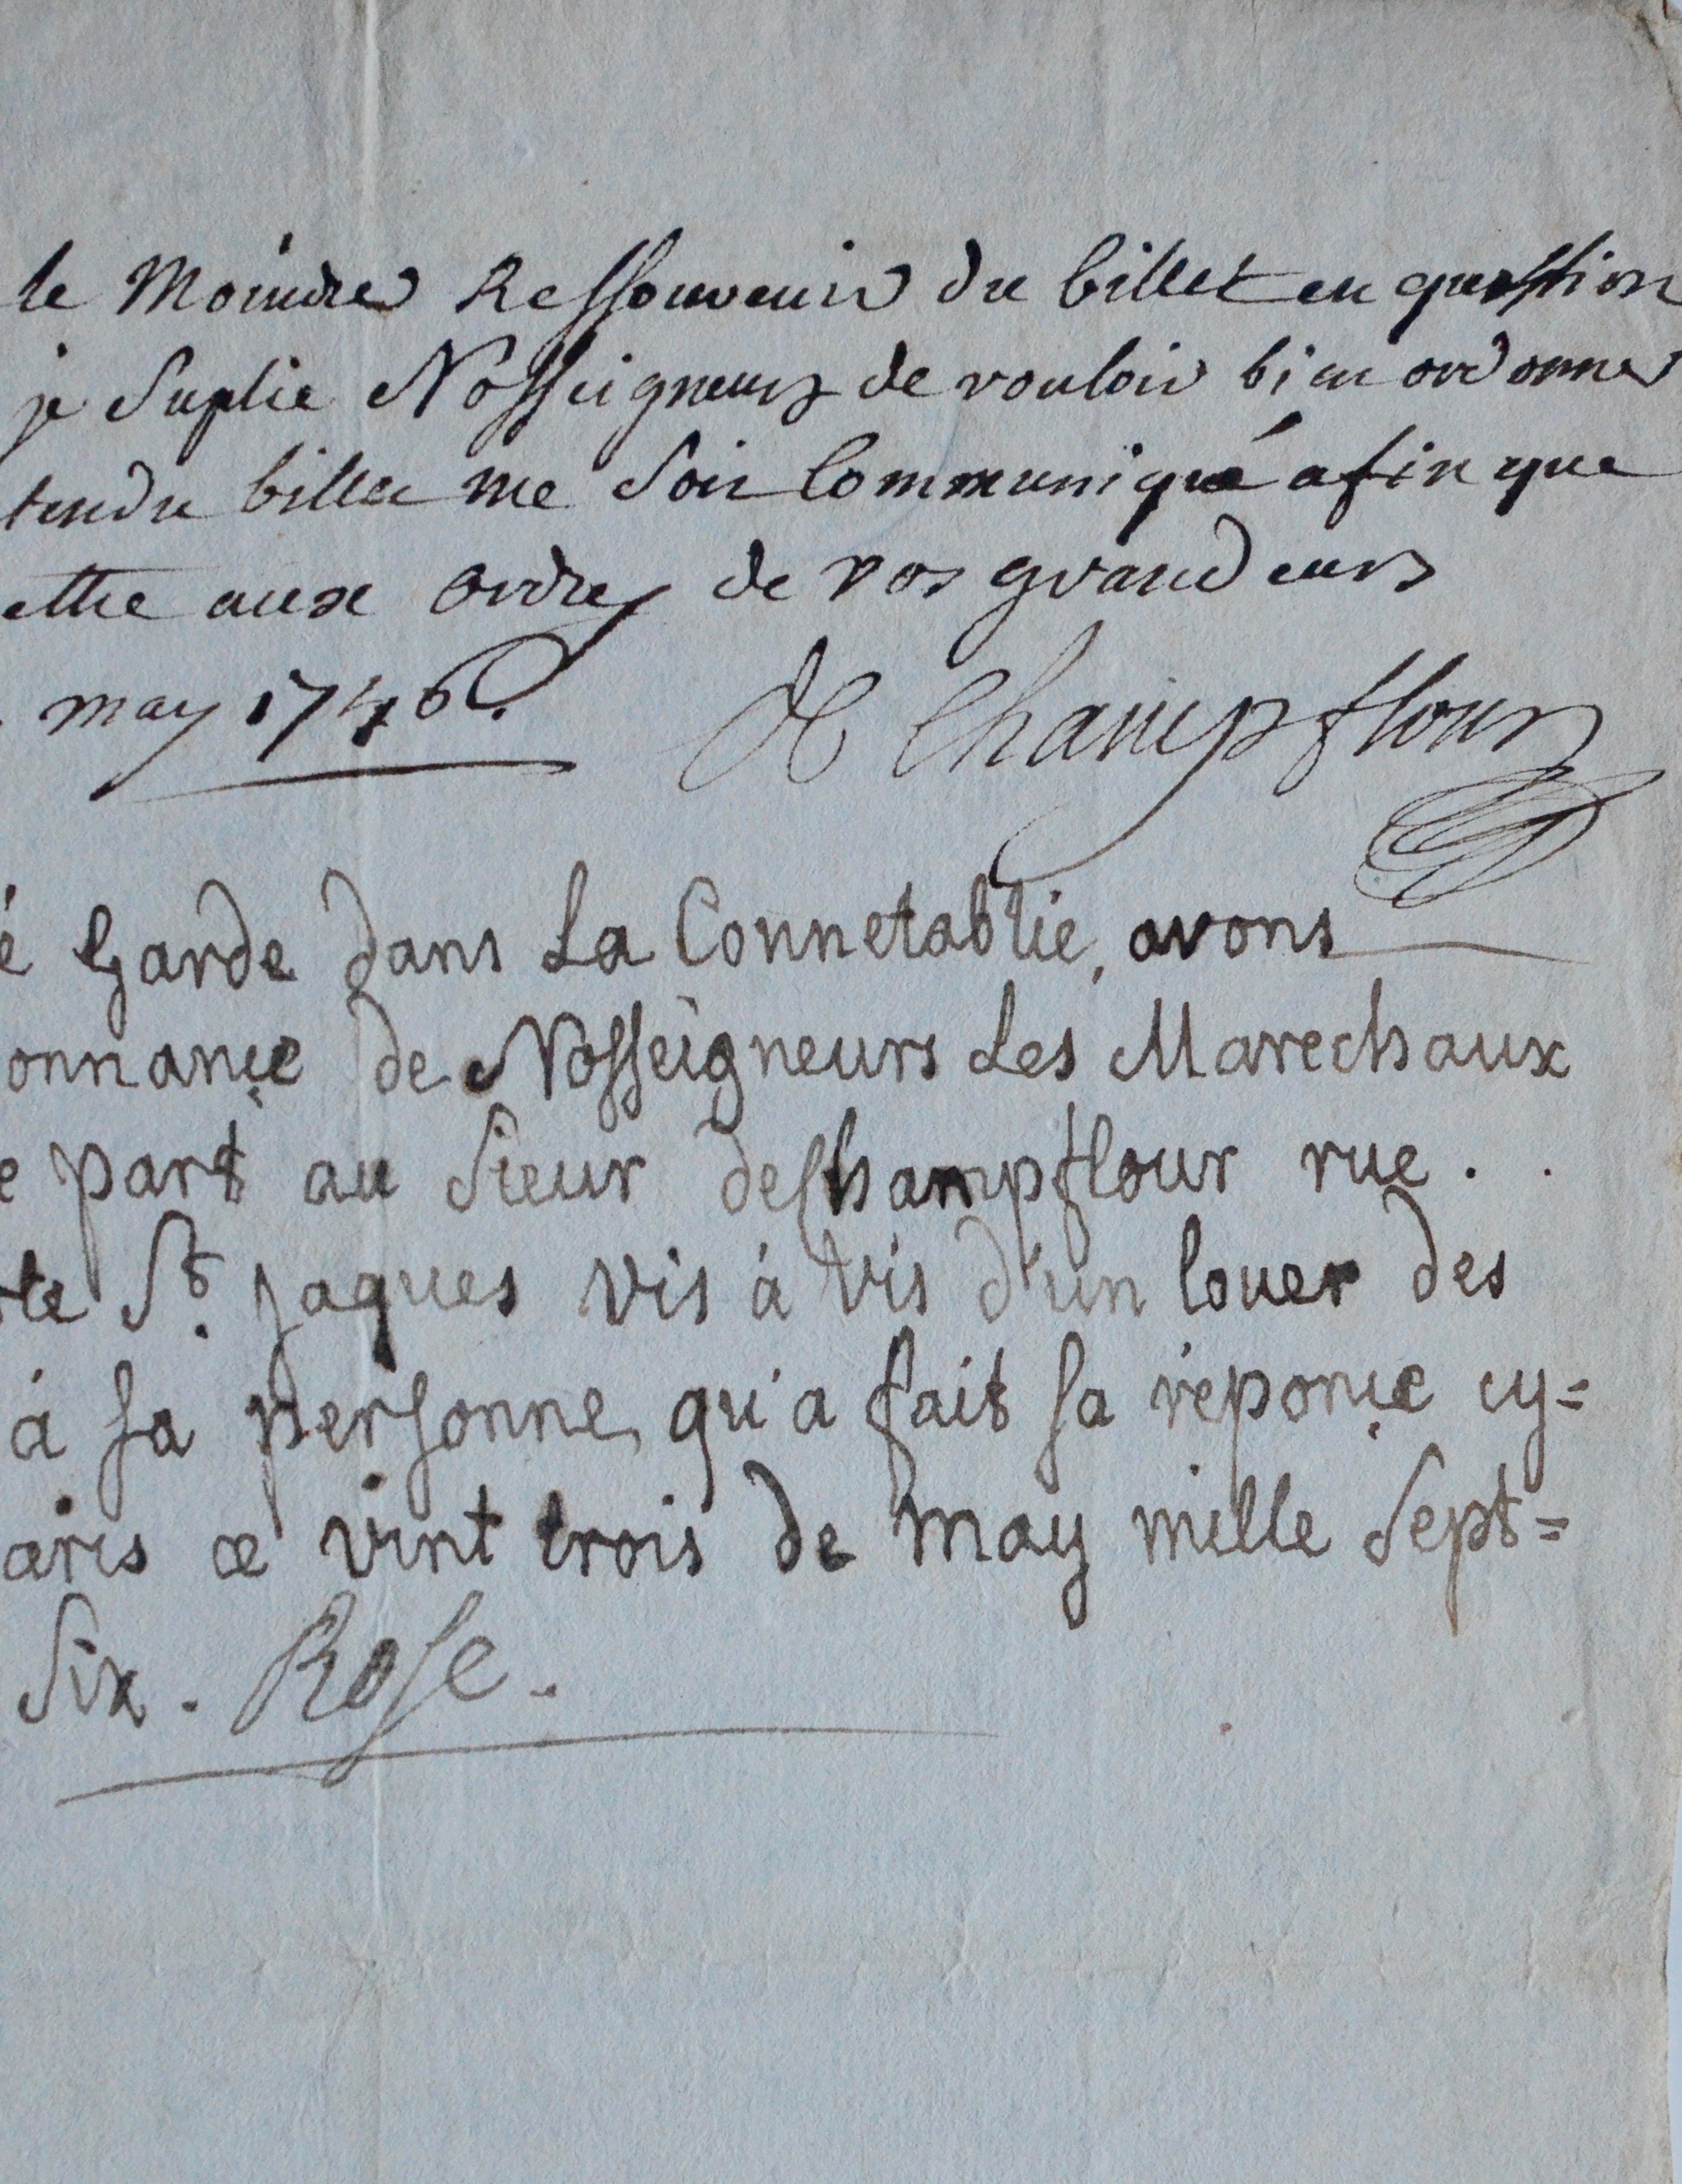 le Moindre Ressouvenir du billet en question
je Suplie Nosseigneurs de vouloir bien ordonner
tendu billet me Soit Communiqué afin que
ettre aux Ordres de vos grandeurs
may 1746.
De Champflour
é Garde dans La Connetablie, avons
onnançe de Nosseigneurs Les Marechaux
e part au Sieur deChampflour rue .
te St. Jaques vis à vis d'un louer des
à sa personne, qui a fait sa réponçe cy=
aris ce vint trois de may mille Sept=
Six. Rose.